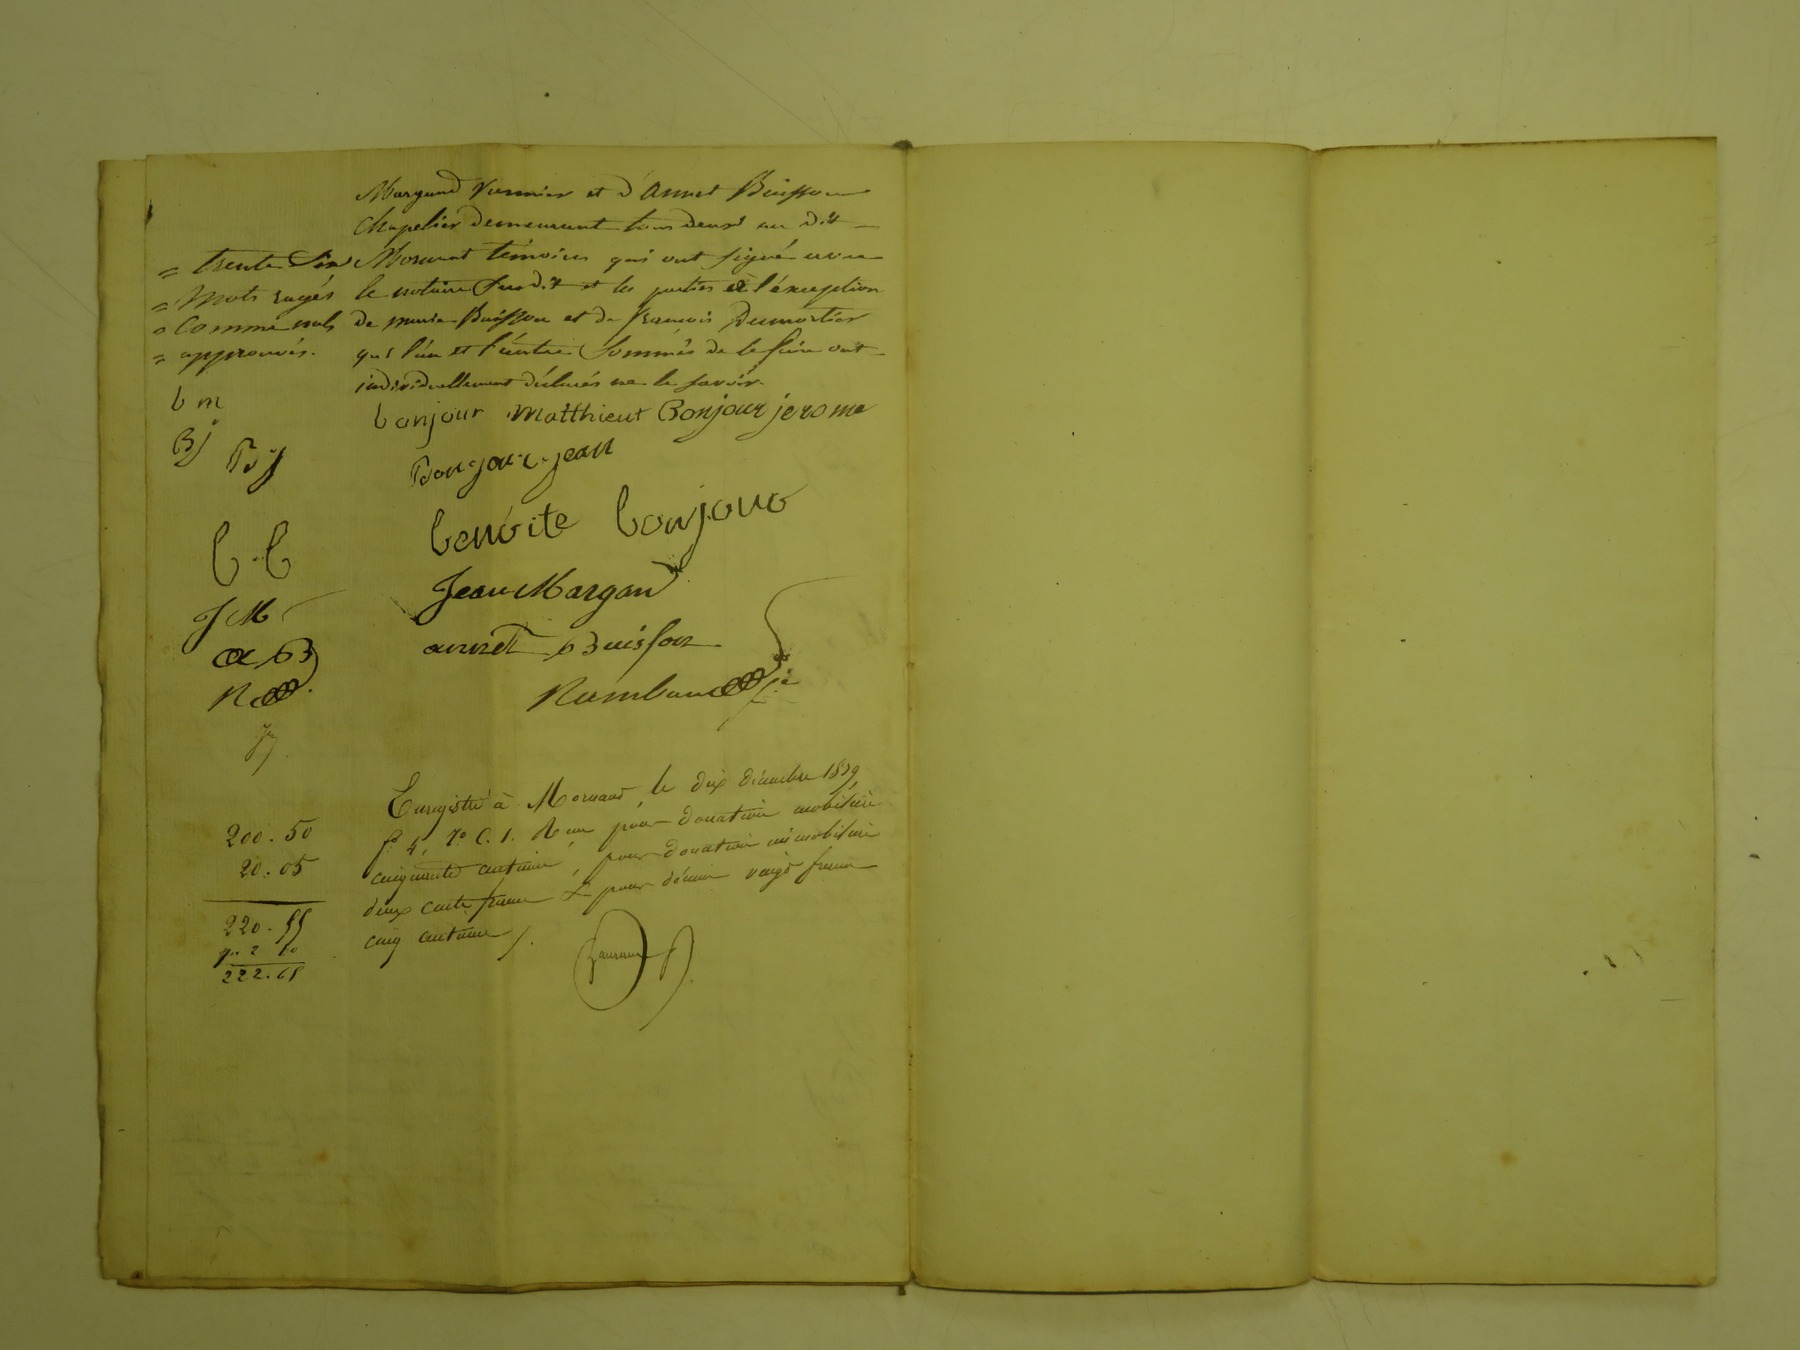 Margand vannier et d'annet Buisson
chapelier demeurant tous deux au dit
Mornant témoins qui ont signé avec
le notaire susdit et les parties à l'éxception
de marie Buisson et de François Dumortier
qui l'un et l'autre sommés de le faire ont
individuellement déclarés ne le savoir.
= trente six
= mots rayés
= Comme nuls
= approuvés.
b m
Bj
Bj
b. b
JM
a B
R
bonjour matthieut Bonjour jerome
Bonjour jean
benoite bonjour
Jean Margand
annet Buisson
Rambaud
Enregistré à Mornant, le dix décembre 1839
f° 4, V° C. 1. Reçu pour donation mobilière
cinquante centimes, pour donation immobilière
deux cents francs & pour décime vingt francs
cinq centimes
200. 50
20. 05
220. 55
2 10
222. 65